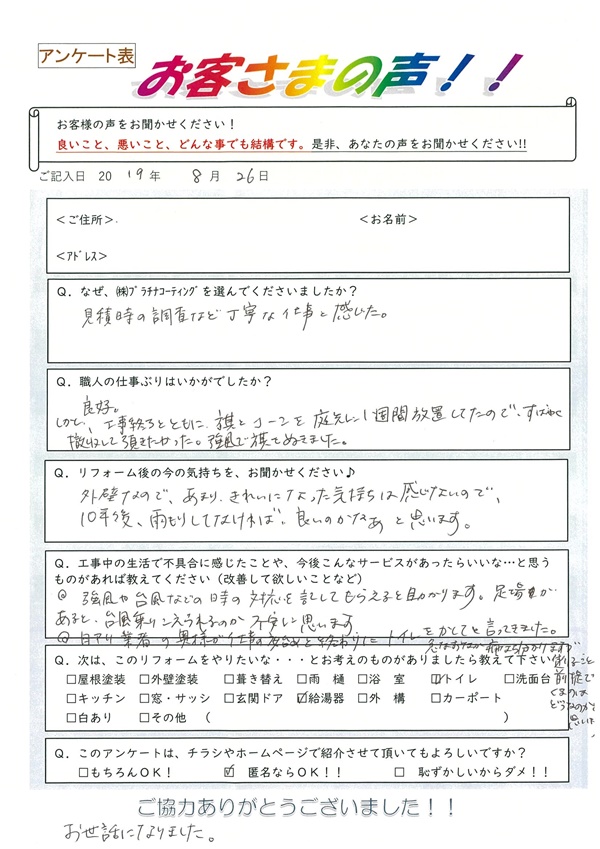 アンケート表
お客さまの声！！
お客様の声をお聞かせください！
良いこと、悪いこと、どんな事でも結構です。是非、あなたの声をお聞かせください!!
ご記入日 20 19年 8月 26日
＜ご住所＞
＜お名前＞
＜ｱﾄﾞﾚｽ＞
Q．なぜ、㈱ﾌﾟﾗﾁﾅｺｰﾃｨﾝｸﾞを選んでくださいましたか？
見積時の調査など丁寧な仕事と感じた。
Q．職人の仕事ぶりはいかがでしたか？
良好。
しかし、工事終るとともに、旗とコーンを庭先に1週間放置してたので、すばやく
撤収して頂きたかった。強風で旗もぬきました。
Q．リフォーム後の今の気持ちを、お聞かせください♪
外壁なので、あまり、きれいになった気持ちは感じないので、
10年後、雨もりしてなければ。良いのかなぁと思います。
Q．工事中の生活で不具合に感じたことや、今後こんなサービスがあったらいいな…と思う
ものがあれば教えてください（改善して欲しいことなど）
強風や台風などの日時の対応を記してもらえると助かります。足場が
あると、台風乗りこえられるのか不安に思います
白アリ業者の奥様が仕事の始めと終わりにトイレをかしてと言ってきました。
Q．次は、このリフォームをやりたいな・・・とお考えのものがありましたら教えて下さい
□屋根塗装 □外壁塗装 □葺き替え □雨　樋 □浴　室 ☑トイレ □洗面台
□キッチン □窓・サッシ □玄関ドア ☑給湯器 □外　構 □カーポート
□白あり □その他 （ ）
Q．このアンケートは、チラシやホームページで紹介させて頂いてもよろしいですか？
□もちろんOK！ ☑ 匿名ならOK！！ □ 恥ずかしいからダメ！！
ご協力ありがとうございました！！
お世話になりました。